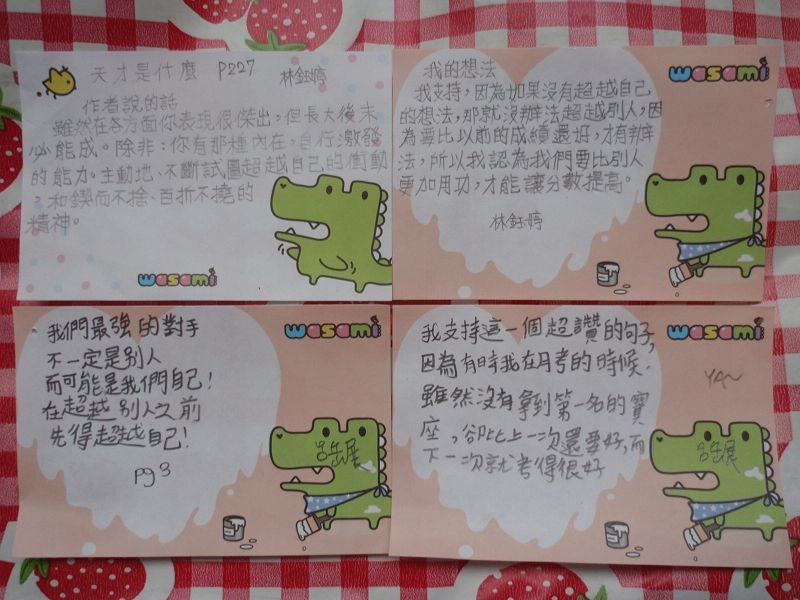 天才是什麼 P227 林鈺婷
作者說的話
雖然在各方面你表現很傑出，但長大後未
必能成。除非：你有那種內在，自行激發
的能力。主動地、不斷試圖超越自己的衝動
，和鍥而不捨、百折不撓的
精神。
wasami
wasami
我的想法
我支持，因為如果沒有超越自己
的想法，那就沒辦法超越別人，因
為要比以前的成績還好，才有辦
法，所以我認為我們要比別人
更加用功，才能讓分數提高。
林鈺婷
wasami
我們最強的對手
不一定是別人
而可能是我們自己！
在超越別人之前
先得超越自己！
P93
呂岳展
wasami
我支持這一個超讚的句子，
因為有時我在月考的時候，
雖然沒有拿到第一名的寶
座，卻比上一次還要好，而
下一次就考得很好
YA~
呂岳展